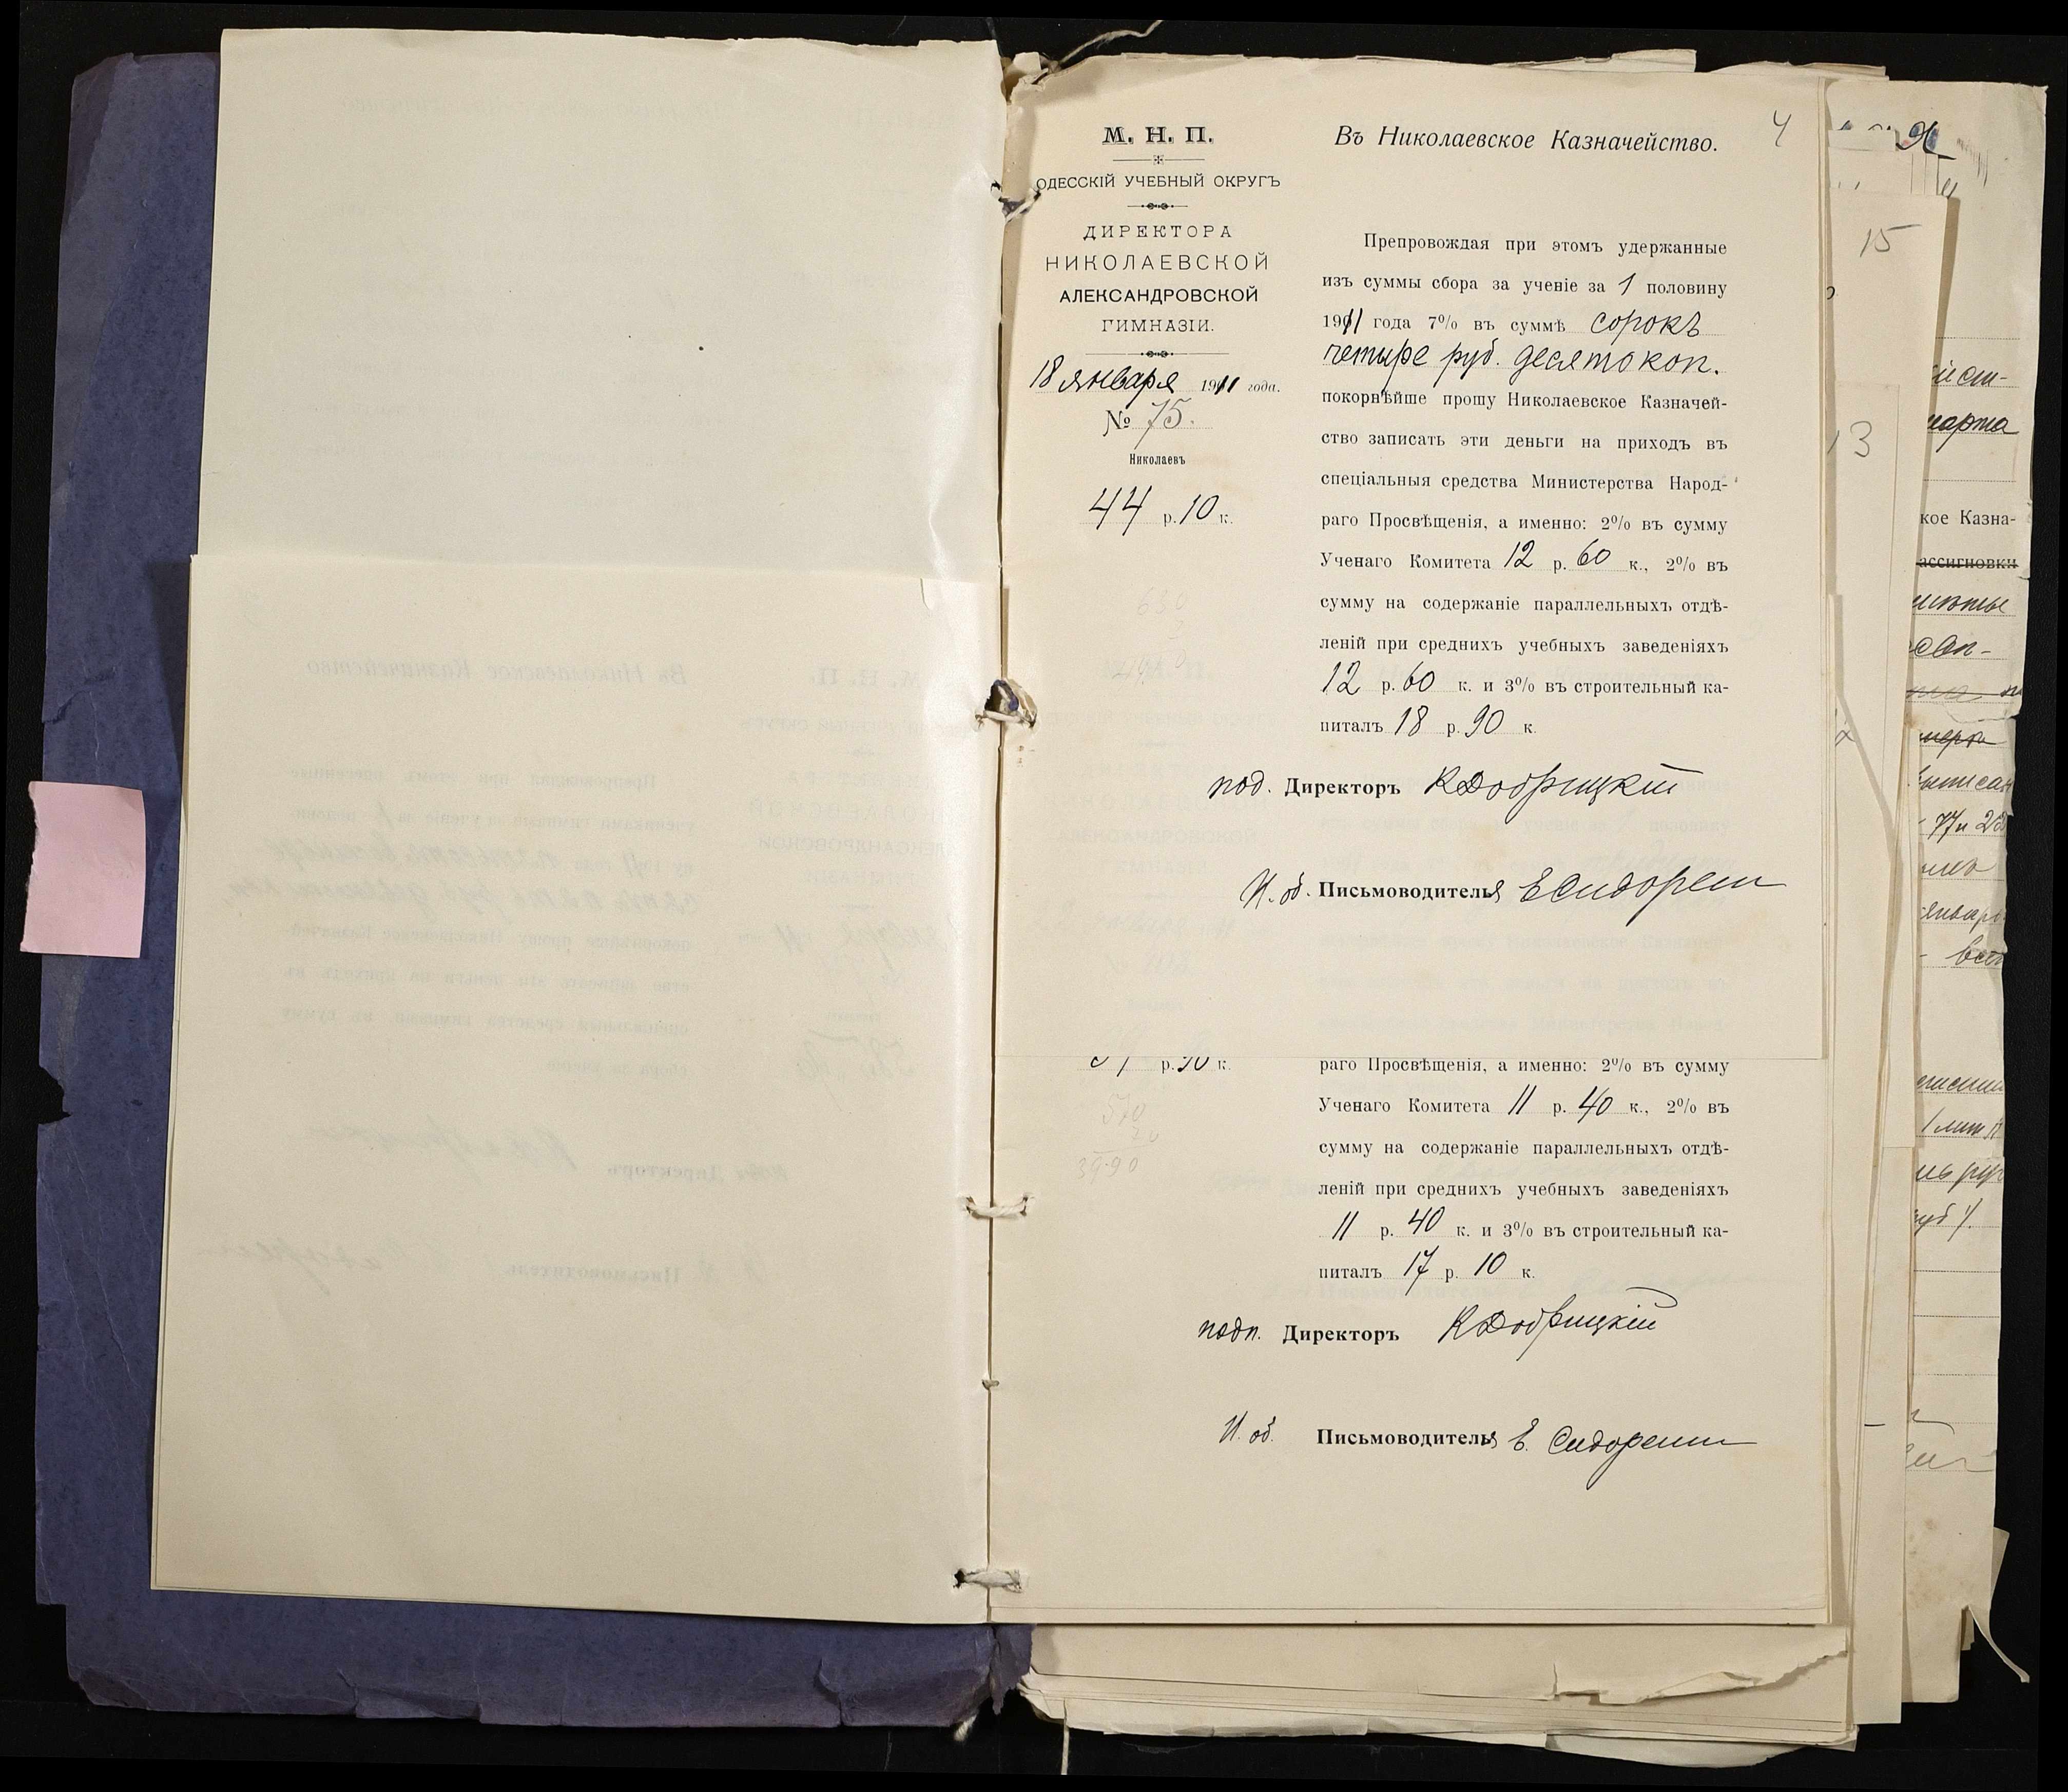 М. Н. П.
ОДЕССКІЙ УЧЕБНЫЙ ОКРУГЪ
ДИРЕКТОРА
НИКОЛАЕВСКОЙ
АЛЕКСАНДРОВСКОЙ
ГИМНАЗІИ.
18 января 1911 года.
№ 75.
Николаевъ
44 р. 10 к.
630
4
Въ Николаевское Казначейство.
Препровождая при этомъ удержанные
изъ суммы сбора за ученіе за 1 половину
1911 года 7% въ суммѣ сорокъ
четыре руб. десять коп.
покорнѣйше прошу Николаевское Казначей-
ство записать эти деньги на приходъ въ
спеціальныя средства Министерства Народ-
раго Просвѣщенія, а именно: 2% въ сумму
Ученаго Комитета 12 р. 60 к., 2% въ
сумму на содержаніе параллельныхъ отдѣ-
леній при среднихъ учебныхъ заведеніяхъ
12 р. 60 к. и 3% въ строительный ка-
питалъ 18 р. 90 к.
под. Директоръ КДобрицкій
И. об. Письмоводителя Е Сидорен
р. 90 к.
570
39.90
раго Просвѣщенія, а именно: 2% въ сумму
Ученаго Комитета 11 р. 40 к., 2% въ
сумму на содержаніе параллельныхъ отдѣ-
леній при среднихъ учебныхъ заведеніяхъ
11 р. 40 к. и 3% въ строительный ка-
питалъ 17 р. 10 к.
подп. Директоръ КДобрицкій
И. об. Письмоводителя Е. Сидорен
15
13
марта
кое Казна-
ассигновки